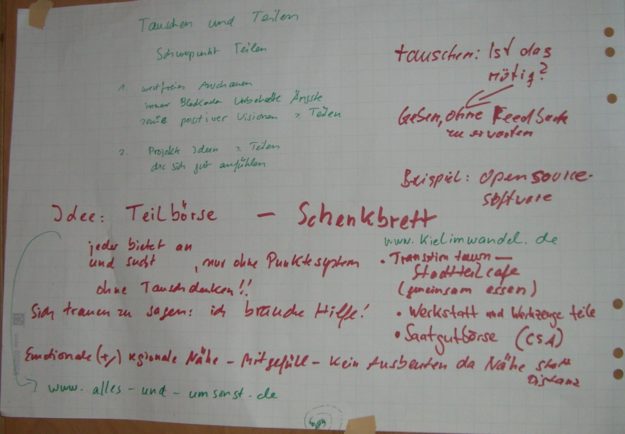 Tauschen und Teilen
Schwerpunkt Teilen
1. wertfreies Anschauen
innerer Blockaden Ängste
positiver Visionen = Teilen
2. Projekte Ideen = Teilen
die sich gut anfühlen
tauschen: Ist das
nötig?
Geben, ohne Feedback
zu erwarten
Beispiel: Opensource-
software
Idee: Teilbörse – Schenkbrett
jeder bietet an
und sucht, nur ohne Punktesystem
ohne Tauschdenken!!
Sich trauen zu sagen: ich brauche Hilfe!
www.kielimwandel.de
• Transition town –
Stadtteilcafe
(gemeinsam essen)
• Werkstatt und Werkzeuge teile
• Saatgutbörse (CSA)
Emotionale (+) regionale Nähe – Mitgefühl – Kein Ausbeuten da Nähe statt
Distanz
www.alles-und-umsonst.de